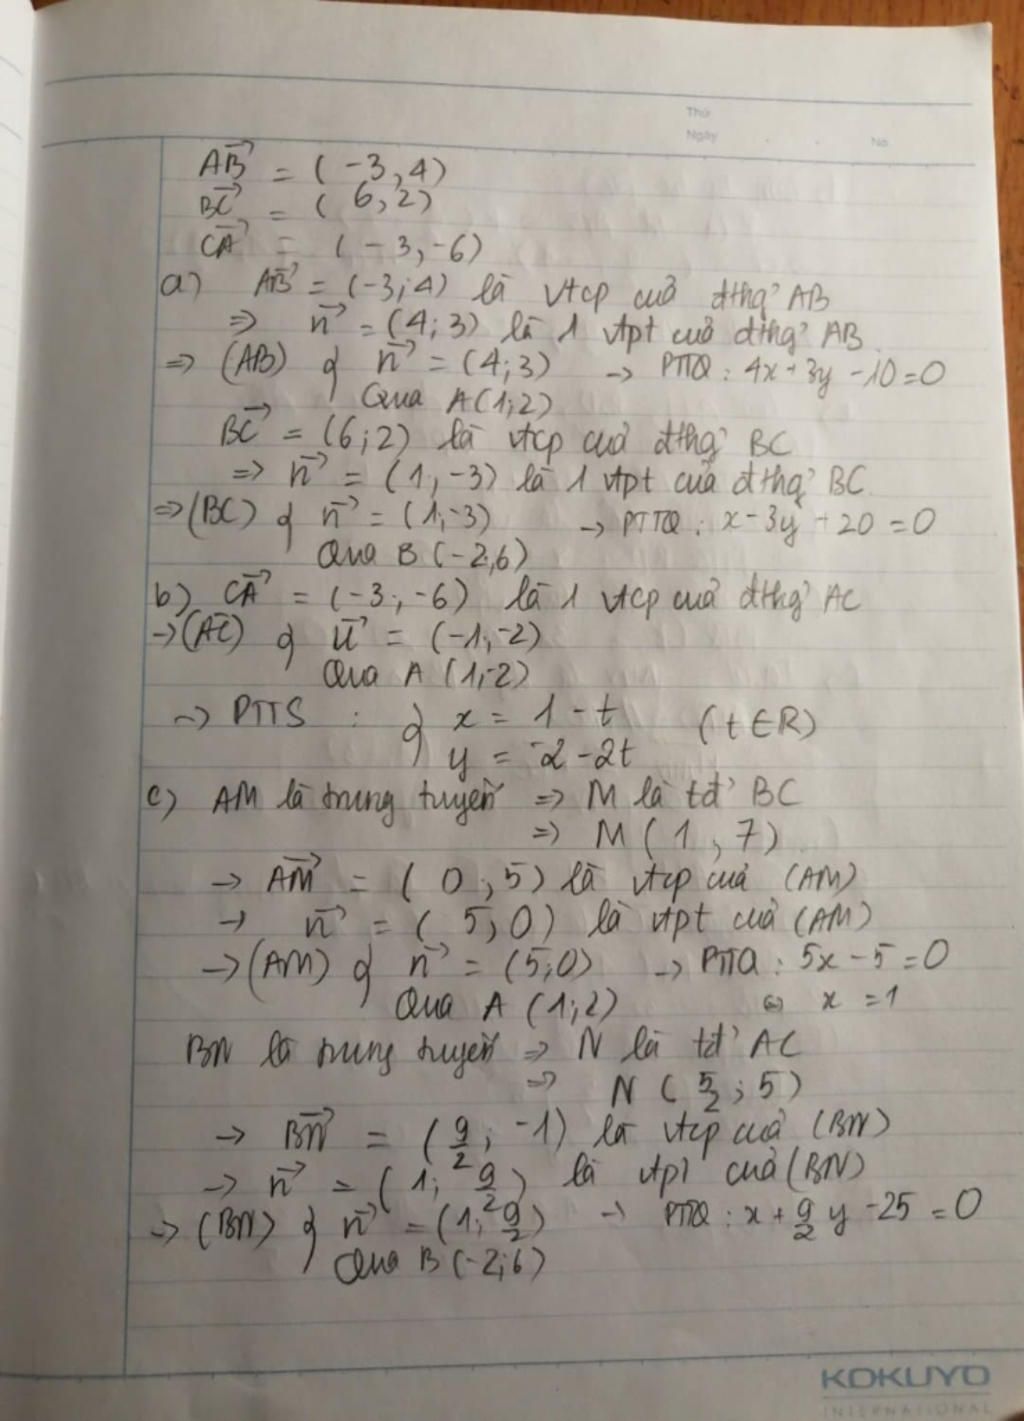 Thứ
Ngày No
AB→ = (-3,4)
BC→ = (6,2)
CA→ = (-3,-6)
a) AB→ = (-3;4) là vtcp củả đthg' AB
=> n→ = (4;3) là 1 vtpt củả đthg' AB
=> (AB) { n→ = (4;3) -> PTTQ : 4x+3y-10=0
Qua A(1;2)
BC→ = (6;2) là vtcp củả đthg' BC
=> n→ = (1,-3) là 1 vtpt của đthg' BC
=> (BC) { n→ = (1,-3) -> PTTQ : x-3y+20=0
Qua B(-2,6)
b) CA→ = (-3;-6) là 1 vtcp củả đthg' AC
-> (AC) { u→ = (-1;-2)
Qua A (1,-2)
-> PTTS : { x = 1-t (t∈R)
y = -2-2t
c) AM là trung tuyến => M là tđ' BC
=> M(1,7)
-> AM→ = (0;5) là vtcp củả (AM)
-> n→ = (5;0) là vtpt củả (AM)
-> (AM) { n→ = (5;0) -> PTTQ : 5x-5=0
Qua A (1;2) <=> x=1
BN là trung tuyến => N là tđ' AC
=> N (5/2;5)
-> BN→ = (9/2;-1) là vtcp củả (BN)
-> n→ = (1;9/2) là vtpt củả (BN)
=> (BN) { n→ = (1;9/2) -> PTTQ : x+9/2y-25=0
Qua B(-2;6)
KOKUYO
INTERNATIONAL